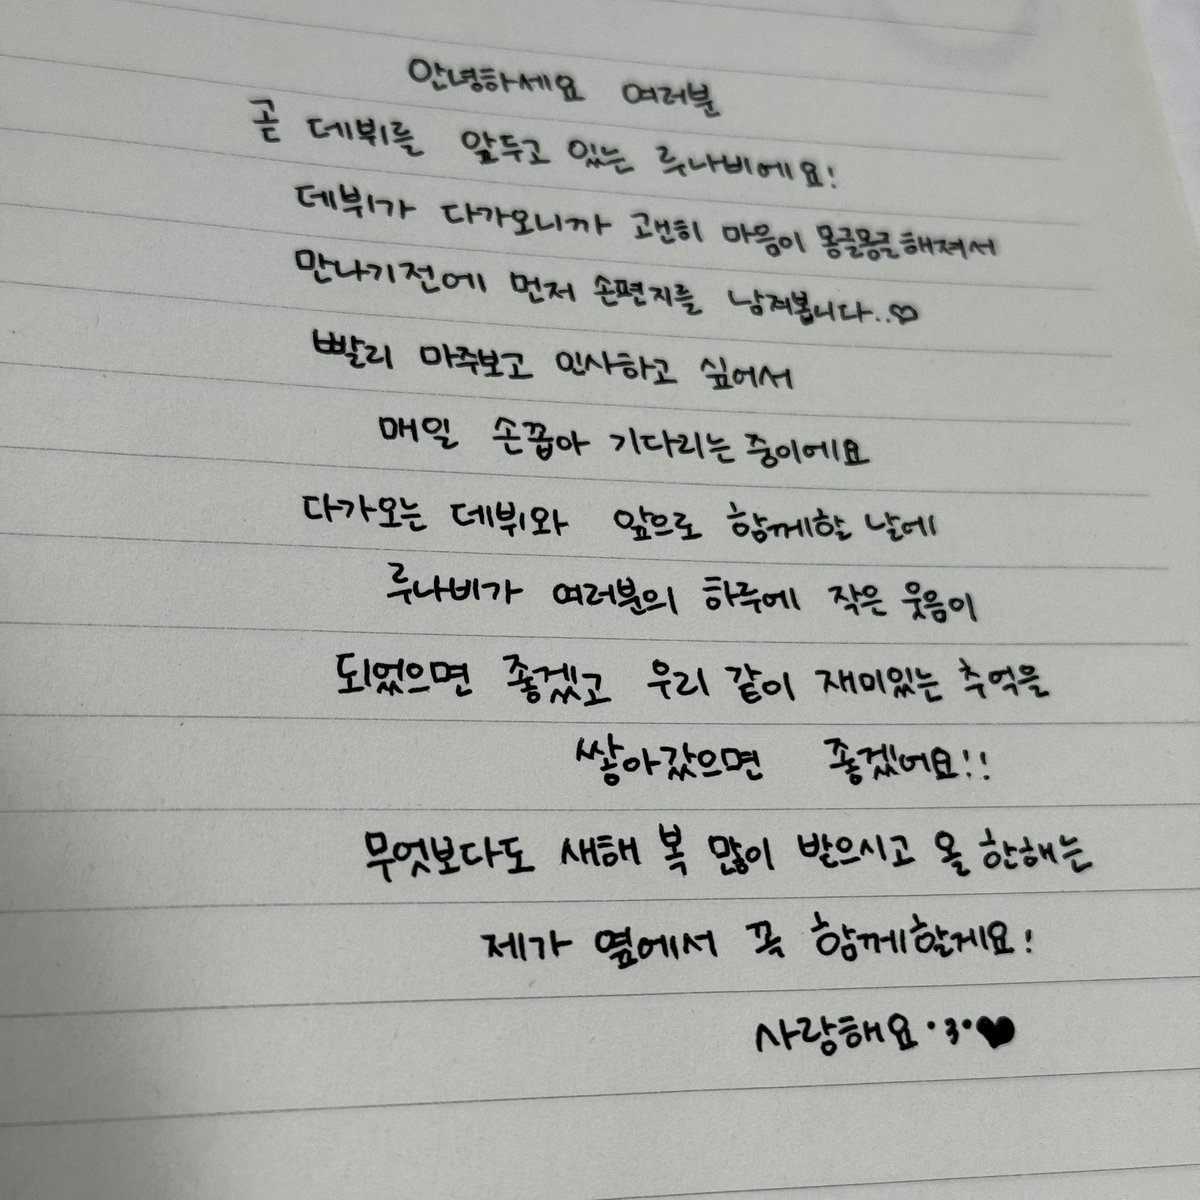 안녕하세요 여러분
곧 데뷔를 앞두고 있는 루나비에요!
데뷔가 다가오니까 괜히 마음이 몽글몽글해져서
만나기전에 먼저 손편지를 남겨봅니다..♡
빨리 마주보고 인사하고 싶어서
매일 손꼽아 기다리는 중이에요
다가오는 데뷔와 앞으로 함께할 날에
루나비가 여러분의 하루에 작은 웃음이
되었으면 좋겠고 우리 같이 재미있는 추억을
쌓아갔으면 좋겠어요!!
무엇보다도 새해 복 많이 받으시고 올 한해는
제가 옆에서 꼭 함께할게요!
사랑해요•3•♥